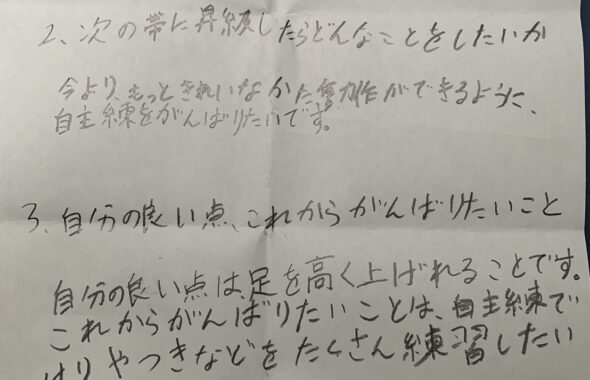 2、次の帯に昇練したらどんなことをしたいか
今より、もっときれいなかた動作ができるように、
自主練をがんばりたいです。
3、自分の良い点、これからがんばりたいこと
自分の良い点は足を高く上げれることです。
これからがんばりたいことは、自主練で
けりやつきなどをたくさん練習したい